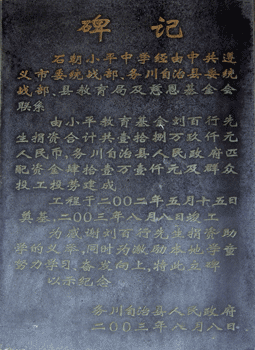 碑记
石朝小平中学经由中共遵
义市委统战部、务川自治县委统
战部、县教育局及慈恩基金会
联系
由小平教育基金刘百行先
生捐资合计共壹拾捌万玖仟元
人民币，务川自治县人民政府匹
配资金肆拾万壹仟元及群众
投工投劳建成
工程于二00二年五月十五日
奠基，二00三年八月八日竣工
为感谢刘百行先生捐资助
学的义举，同时为激励本地学童
努力学习，奋发向上，特此立碑
以示纪念
务川自治县人民政府
二00三年八月八日